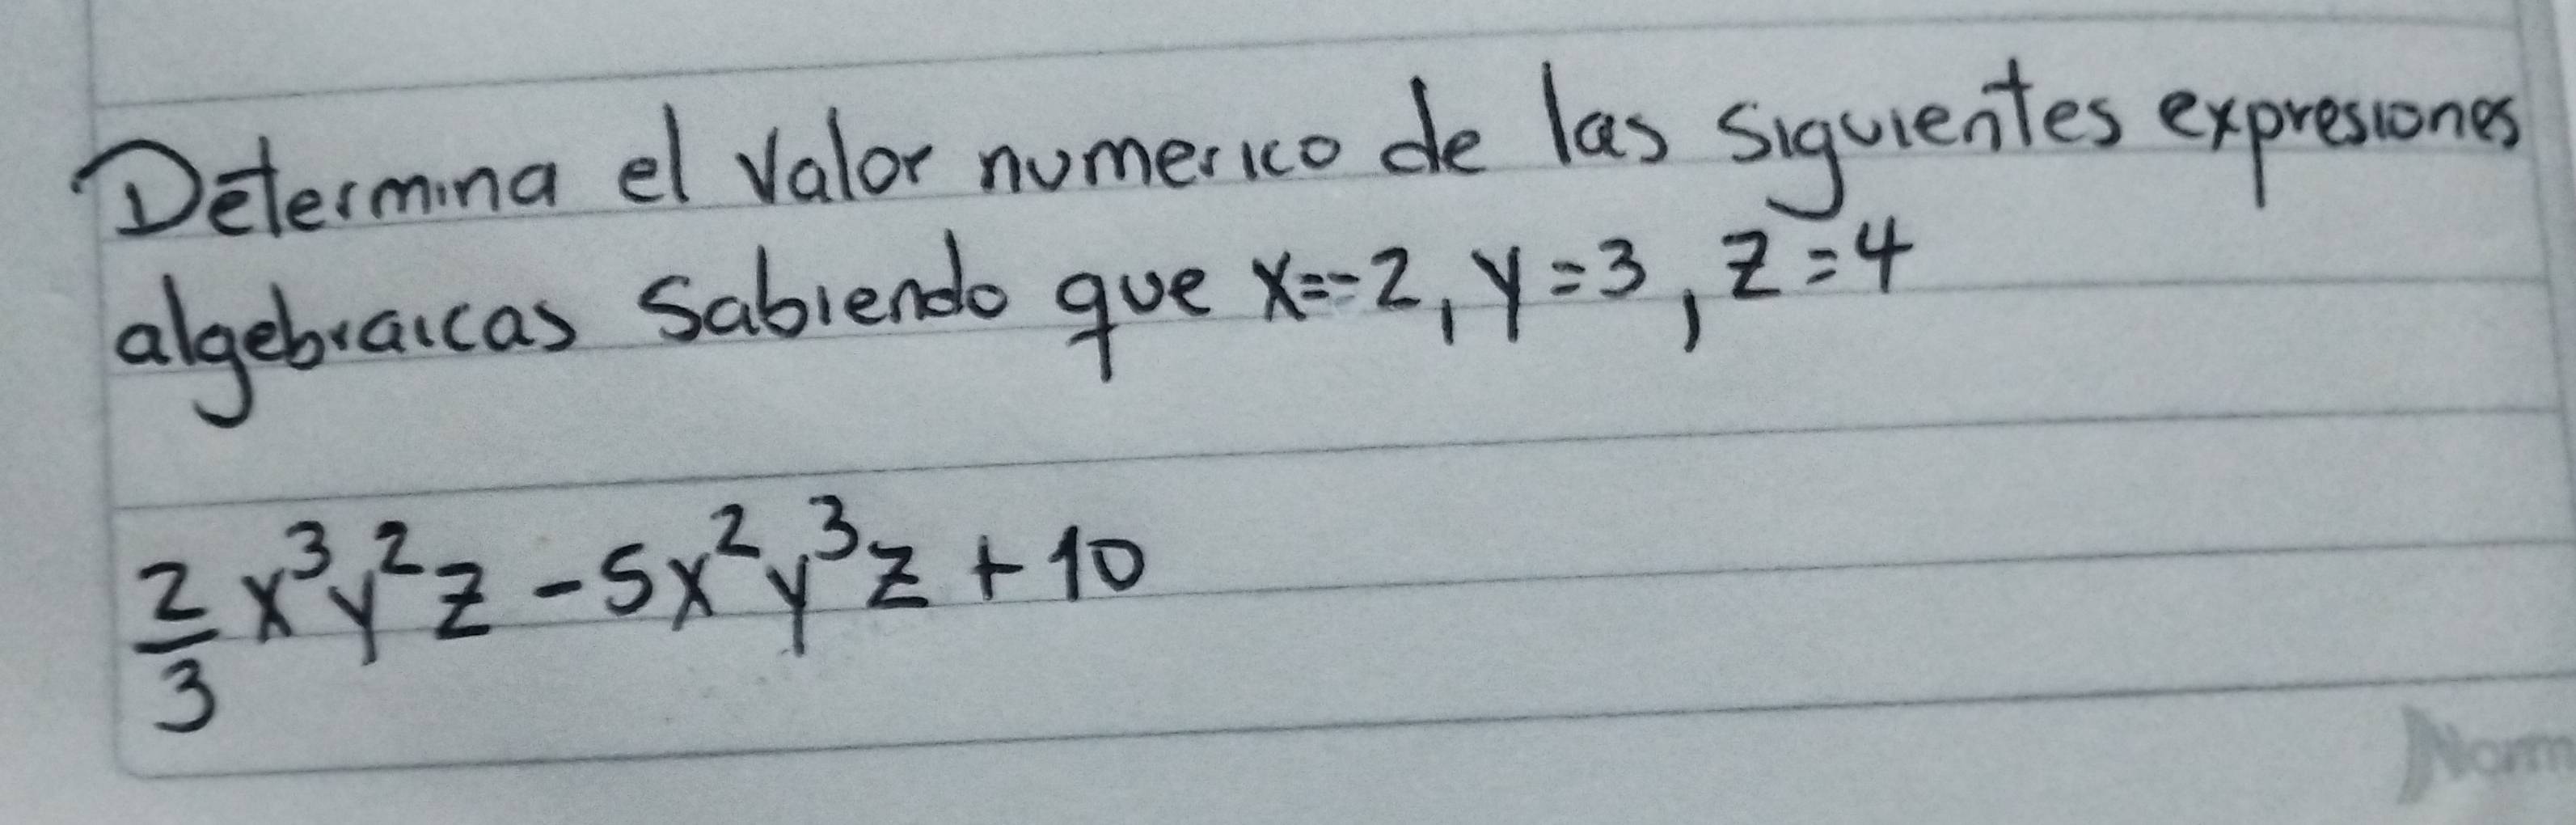 Determina el valor numerico de las siguientes expresiones
algebraicas sabiendo que x=-2, y=3, z=4
2/3 x³y²z - 5x²y³z + 10
Norm